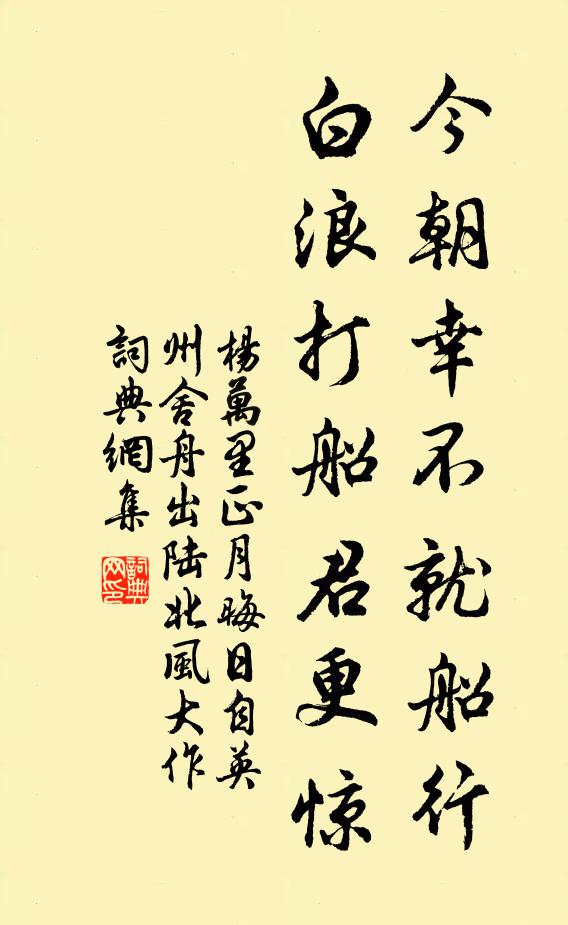 今朝幸不就船行
白浪打船君更惊
楊萬里正月晦日自英
州舍舟出陆北風大作
詞典網集
詞典网印